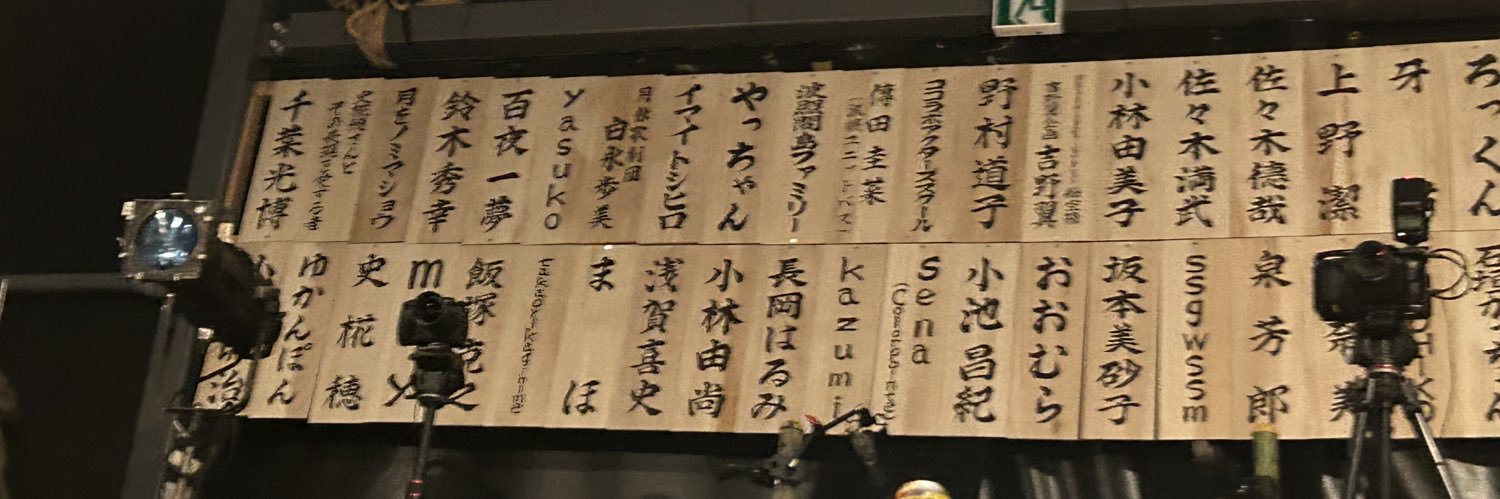 ろっくん
牙
上野潔
佐々木德哉
佐々木満武
小林由美子
吉野翼
野村道子
傳田圭菜
波照間島ファミリー
やっちゃん
イマイトシヒロ
月蝕歌劇団
白永歩美
yasuko
百夜一夢
鈴木秀幸
月とノミマショウ
千葉光博
泉芳郎
ssgwssm
坂本美砂子
おおむら
小池昌紀
sena
kazumi
長岡はるみ
小林由尚
浅賀喜史
まほ
飯塚克之
史椛穂
ゆかんぽん